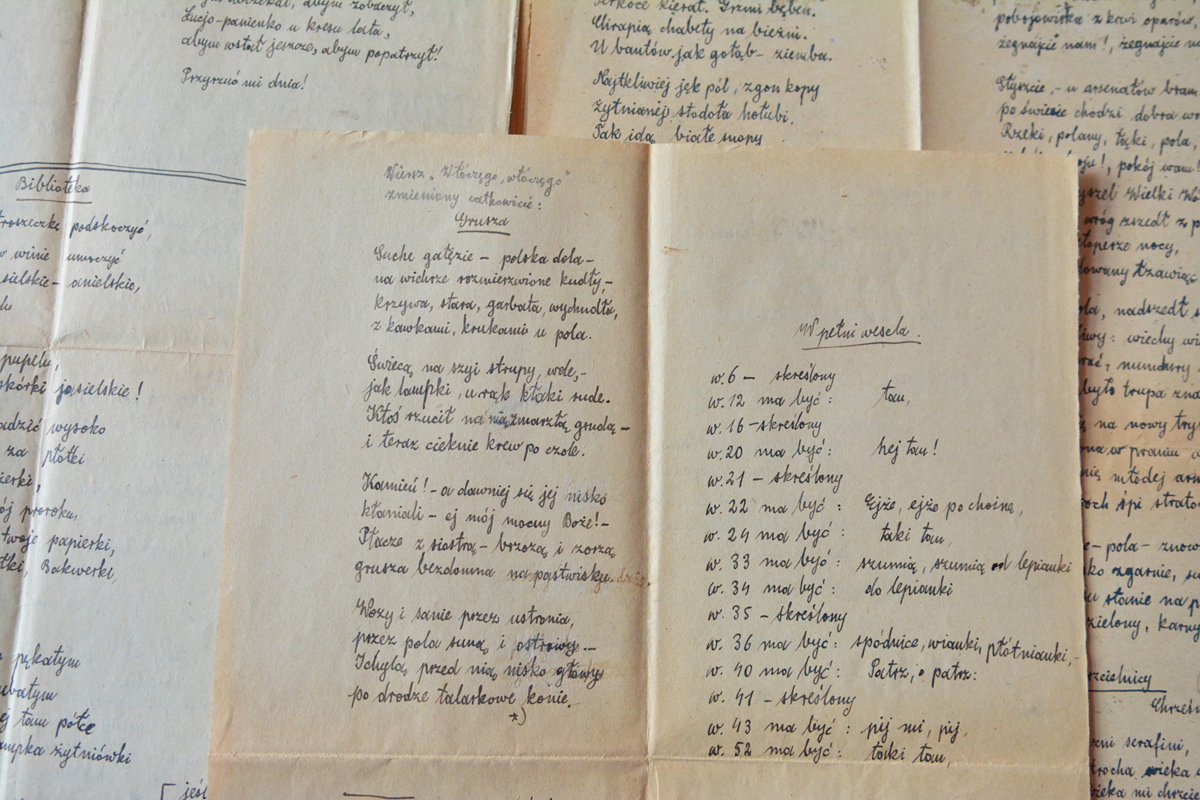 abym zobaczył,
Łucjo-panienko u kresu lata,
abym wstał jeszcze, abym popatrzył!
Przyrzuć mi dnia!
Biblioteka
troszeczkę podskoczyć,
w winie umoczyć
sielskie - anielskie,
pupelu,
skórki jasielskie!
wysoko
za płotki
proroku,
twoje papierki,
Bakwerki,
pękatym
ej tam półce
lampka żytniówki
[ jeśl
kierat. Grzmi bęben.
Chrapią chabety na bieżni.
U bantów jak gołąb - ziemba.
Najtkliwiej jęk pól, zgon kopy
żytnianej stodoła hołubi.
Tak idą białe snopy
pobojowiska z krwi oparów,
żegnajcie nam!, żegnajcie na
Słyszcie, - u arsenałów bram
po świecie chodzi dobra wo
Rzeki, polany, łąki, pola,
pokój wam!
Wielki Wo
wróg zszedł z p
nocy,
nadszedł s
wiechy wi
mundury
było trupa zna
na nowy try
w praniu
młodej
śpi strato
pola - znow
zgarnie,
stanie na p
karny
Chrześ
serafini,
trocha wieka
Wiersz „Włóczęgo, włóczęgo"
zmieniony całkowicie:
Grusza
Suche gałęzie - polska dola -
na wichrze rozmierzwione kudły, -
krzywa, stara, garbata, wychudła,
z kawkami, krukami u pola.
Świecą na szyi strupy, wole, -
jak lampki, u rąk kłaki rude.
Ktoś rzucił na nią zmarzłą grudą -
i teraz cieknie krew po czole.
Kamień! - a dawniej się jej nisko
kłaniali - ej mój mocny Boże! -
Płacze z siostrą - brzozą i zorzą
grusza bezdomna na pastwisku.
Wozy i sanie przez ustronia,
przez pola suną i ostrowy. -
Schylą przed nią nisko głowy
po drodze talarkowe konie.
*)
W pełni wesela.
w. 6 - skreślony
w. 12 ma być: tan,
w. 16 - skreślony
w. 20 ma być: hej tan!
w. 21 - skreślony
w. 22 ma być: Ejże, ejże po choinę,
w. 24 ma być: taki tan,
w. 33 ma być: szumią, szumią od lepianki
w. 34 ma być: do lepianki
w. 35 - skreślony
w. 36 ma być: spódnice, wianki, płótnianki, -
w. 40 ma być: Patrz, o patrz:
w. 41 - skreślony
w. 43 ma być: pij mi, pij,
w. 52 ma być: taki tan,